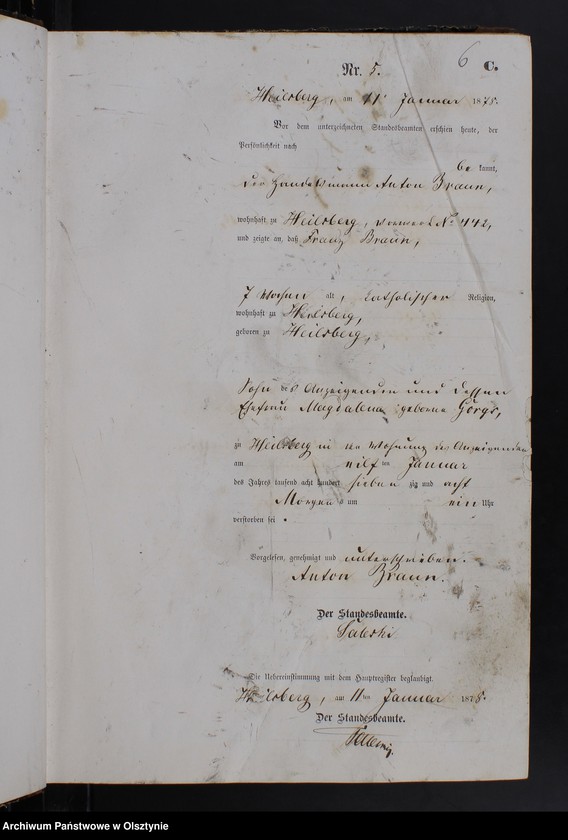 6
Nr. 5.
C.
Heilsberg, am 11 Januar 1878.
Vor dem unterzeichneten Standesbeamten erschien heute, der
Persönlichkeit nach
be kannt,
der Handelsmann Anton Braun,
wohnhaft zu Heilsberg, No 442,
und zeigte an, daß Franz Braun,
7 Wochen alt, katholischer Religion,
wohnhaft zu Heilsberg,
geboren zu Heilsberg,
Sohn des Anzeigenden und dessen
Ehefrau Magdalena geborne
zu Heilsberg in der Wohnung des Anzeigenden
am eilf ten Januar
des Jahres tausend acht hundert sieben zig und acht
Morgens um ein Uhr
verstorben sei.
Vorgelesen, genehmigt und unterschrieben.
Anton Braun.
Der Standesbeamte.
Die Uebereinstimmung mit dem Hauptregister beglaubigt.
Heilsberg, am 11 ten Januar 1878.
Der Standesbeamte.
Archiwum Państwowe w Olsztynie